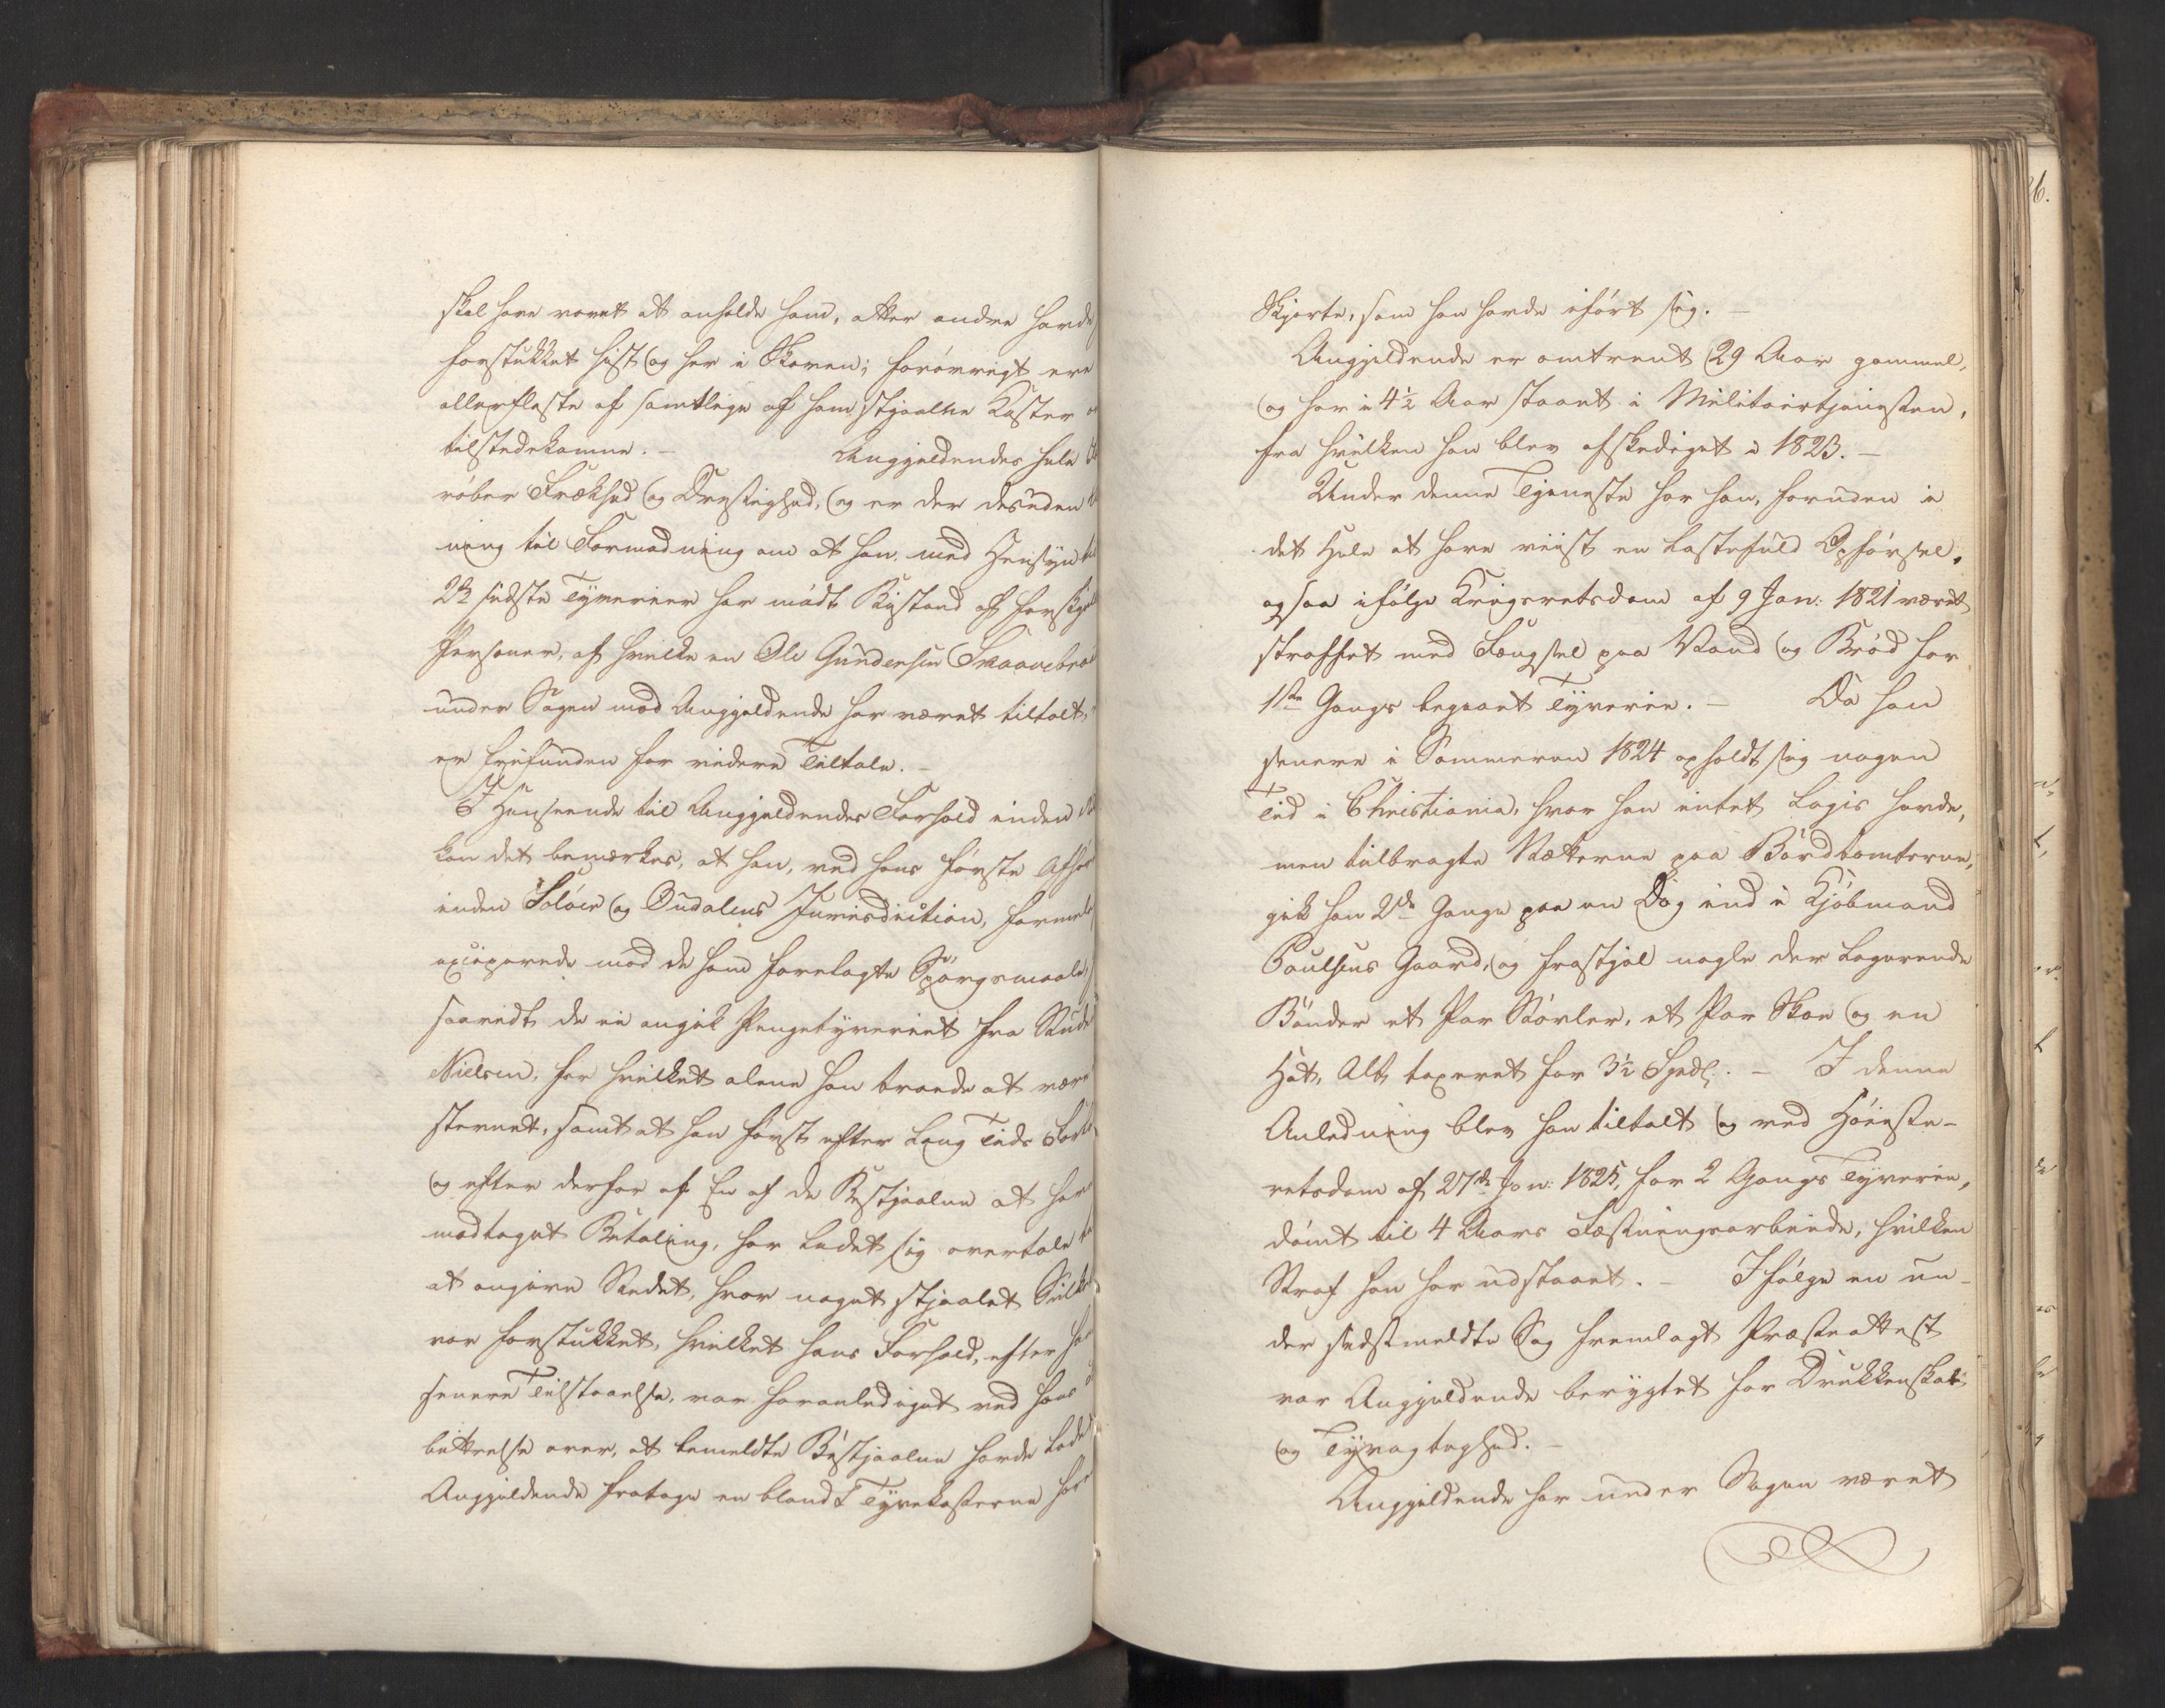 skal have været at anholde ham, atter andre havde
forstukket hist og her i Skoven; forøvrigt ere
allerfleste af samtlige af ham stjaalne Koster
tilstedekomne. – Angjeldendes hele
røber Frækhed og Dristighed, og er der desuden
ning til Formodning om at han, med Hensyn
2de sidste Tyverier har nödt Bistand af forskjel
Personer, af hvilke en Ole Gundersen Skaarebraa
under Sagen mod Angjeldende har været tiltalt,
er frifunden for videre Tiltale. –
I Henseende til Angjeldendes Forhold inden
kan det bemærkes, at han, ved hans første Afhør
inden Soløer og Oudalens Jurisdiction, formelig
exciperede mod de ham forelagte Spørgsmaale,
saavidt de ei angik Pengetyveriet fra Knud
Nielsen, for hvilket alene han troede at være
stevnet, samt at han først efter lang Tids
og efter derfor af En af de Bestjaalne at have
modtaget Betaling, har ladet sig overtale
at angive Stedet, hvor noget stjaalet
var forstukket, hvilket hans Forhold, efter
senere Tilstaaelse, var foranlediget ved hans
bittrelse over, at bemeldte Bestjaalne havde ladet
Angjeldende fratage en blandt Tyvekosterne
Skjorte, som han havde iført sig. –
Angjeldende er omtrent 29 Aar gammel,
og har i 4½ Aar staaet i Militairtjenesten,
fra hvilken han blev afskediget i 1823. –
Under denne Tjeneste har han, foruden i
det Hele at have viist en lastefuld Opførsel,
ogsaa ifølge Krigsretsdom af 9 Jan: 1821 været
straffet med Fængsel paa Vand og Brød for
1ste Gangs begaaet Tyverie. – Da han
senere i Sommeren 1824 opholdt sig nogen
Tid i Christiania, hvor han intet Logis havde,
men tilbragte Nætterne paa Bordtomterne,
gik han 2de Gange paa en Dag ind i Kjøbmand
Poulsens Gaard, og frastjal nogle der logerende
Bønder et Par Støvler, et Par Skoe og en
Hat, Alt taxeret for 3½ Spdl. – I denne
Anledning blev han tiltalt og ved Høieste-
retsdom af 27de Jan: 1825, for 2 Gangs Tyverie,
dømt til 4 Aars Fæstningsarbeide, hvilken
Straf han har udstaaet. – Ifølge en un-
der sidstmeldte Sag fremlagt Præsteattest
var Angjeldende berygtet for Drukkenskab
og Tyvagtighed. –
Angjeldende har under Sagen været